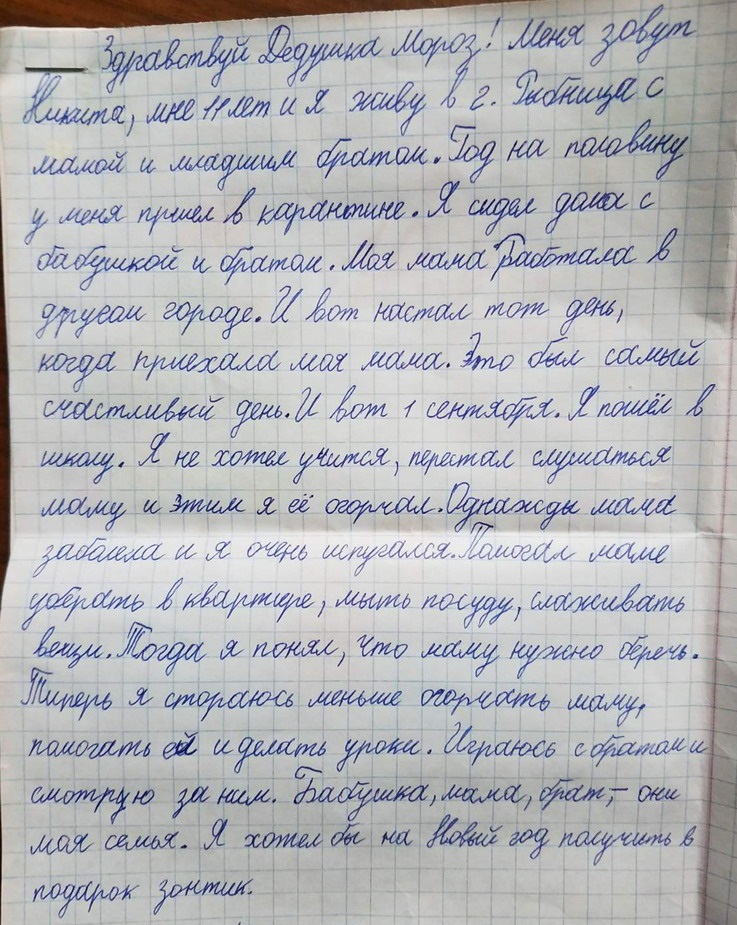 Здравствуй Дедушка Мороз! Меня зовут
Никита, мне 11 лет и я живу в г. Рыбница с
мамой и младшим братом. Год на половину
у меня прошел в карантине. Я сидел дома с
бабушкой и братом. Моя мама работала в
другом городе. И вот настал тот день,
когда приехала моя мама. Это был самый
счастливый день. И вот 1 сентября. Я пошёл в
школу. Я не хотел учится, перестал слушаться
маму и этим я её огорчал. Однажды мама
заболела и я очень испугался. Помогал маме
убирать в квартире, мыть посуду, слаживать
вещи. Тогда я понял, что маму нужно беречь.
Типерь я стораюсь меньше огорчать маму,
помогать ей и делать уроки. Играюсь с братом и
смотрю за ним. Бабушка, мама, брат, – они
моя семья. Я хотел бы на Новый год получить в
подарок зонтик.